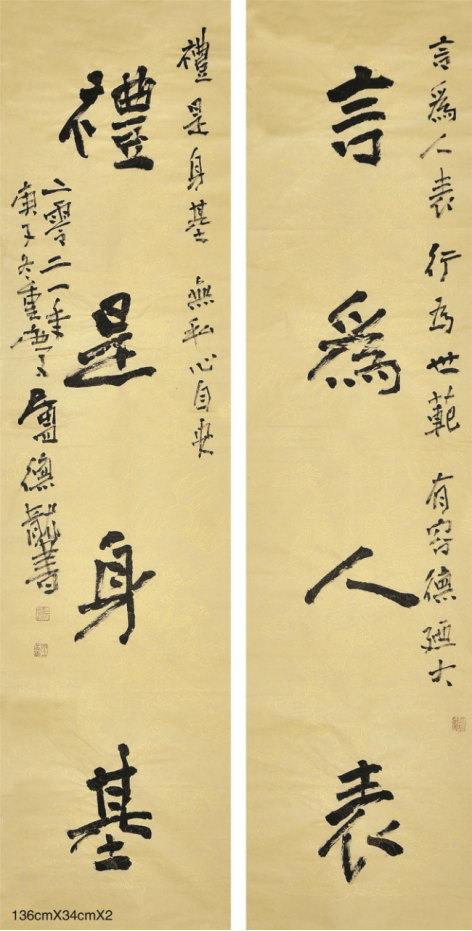 言爲人表 行为世範 有容德迺大
言爲人表
禮是身基 無私心自安
禮是身基
二零二一年
庚子冬重慶
盧德龍書
136cmX34cmX2